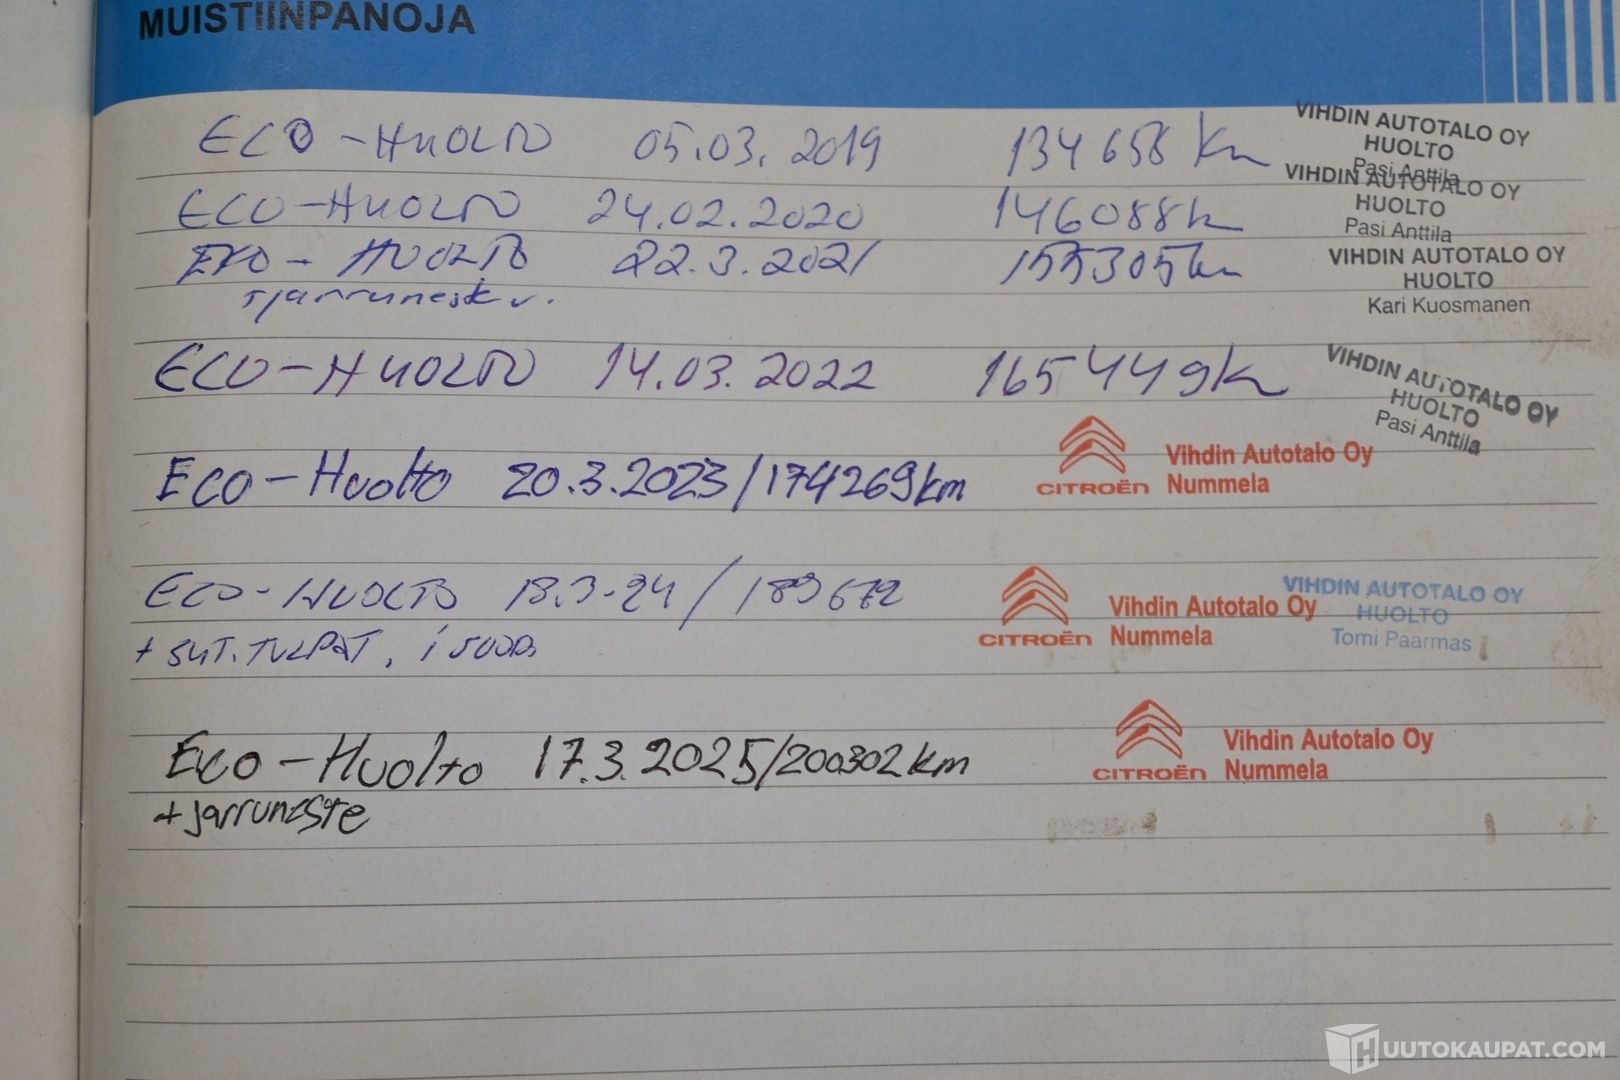 MUISTIINPANOJA
ECO-HUOLTO 05.03.2019 134658 km
VIHDIN AUTOTALO OY
HUOLTO
Pasi Anttila
ECO-HUOLTO 24.02.2020 146088km
VIHDIN AUTOTALO OY
HUOLTO
Pasi Anttila
EKO-HUOLTO 22.3.2021 155305km
VIHDIN AUTOTALO OY
HUOLTO
Kari Kuosmanen
ECO-HUOLTO 14.03.2022 165449km
VIHDIN AUTOTALO OY
HUOLTO
Pasi Anttila
ECO-HUOLTO 20.3.2023/174269km
CITROËN
Vihdin Autotalo Oy
Nummela
ECO-HUOLTO 18.3-24/189672
+ SYT.TULPAT,
CITROËN
Vihdin Autotalo Oy
Nummela
VIHDIN AUTOTALO OY
HUOLTO
Tomi Paarmas
Eco-Huolto 17.3.2025/200302km
+jarruneste
CITROËN
Vihdin Autotalo Oy
Nummela
HUUTOKAUPAT.COM